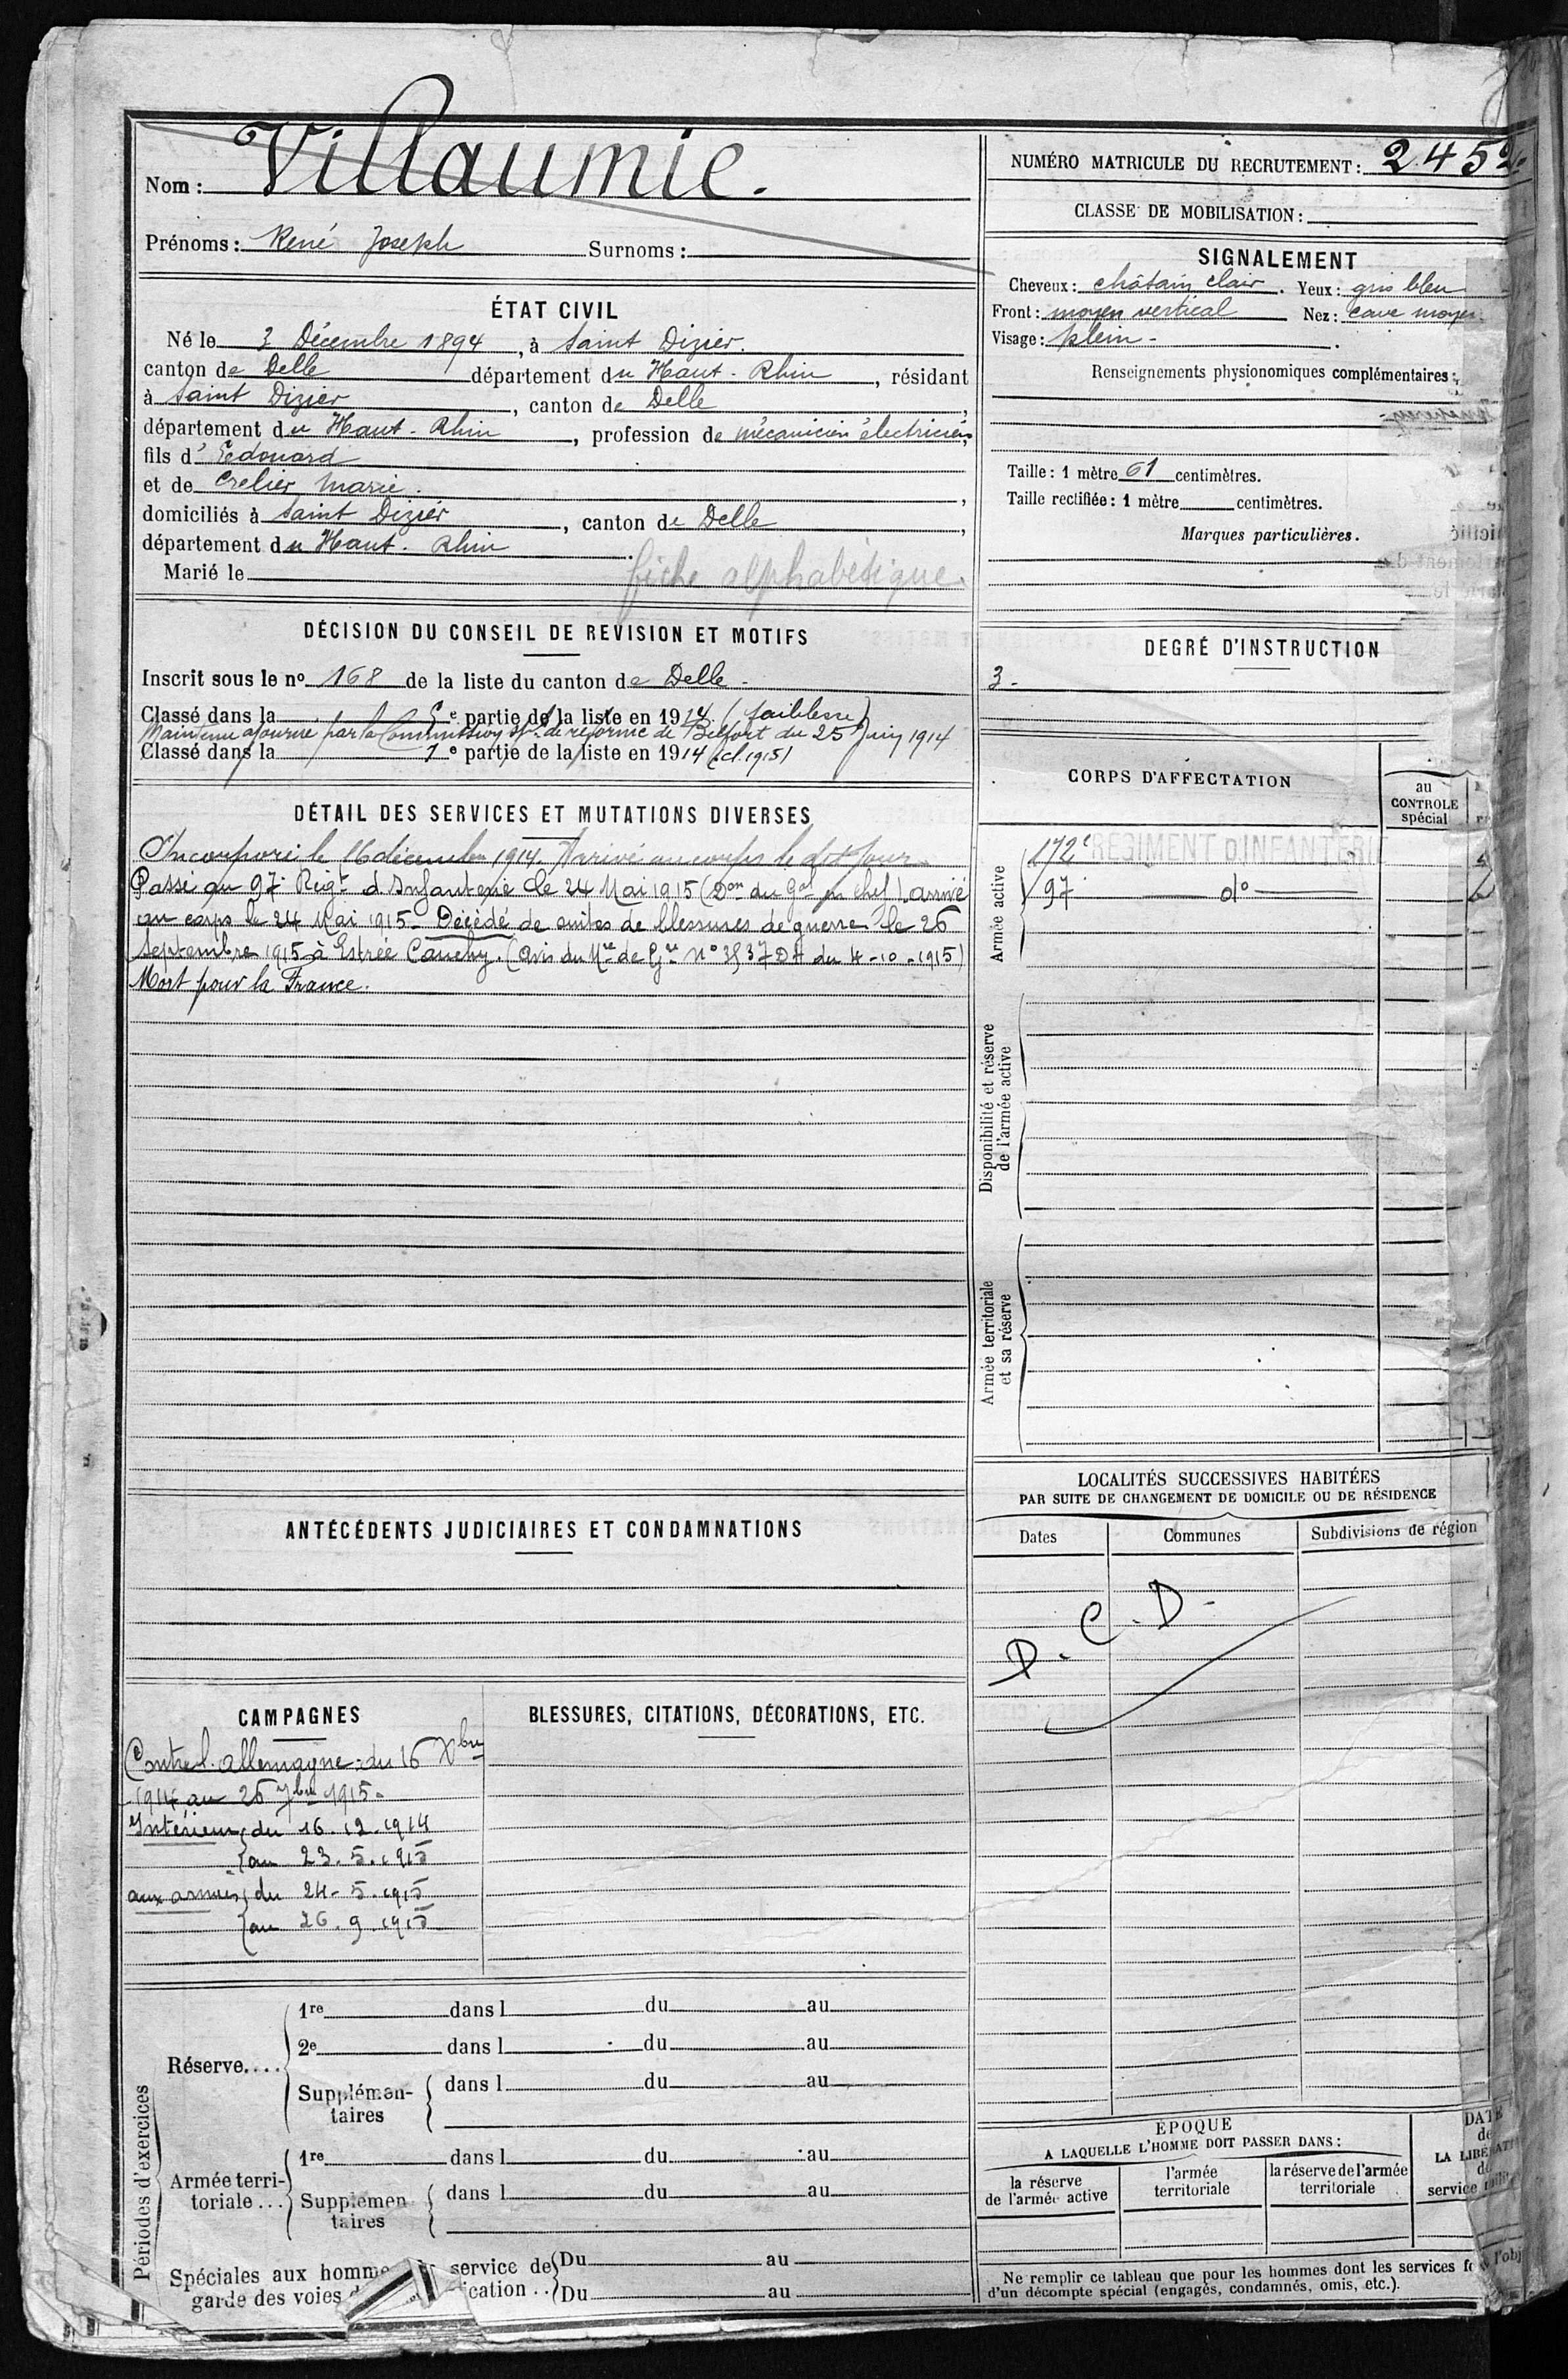 Nom : Villaumie.
Prénoms : René Joseph Surnoms :
ÉTAT CIVIL
Né le 3 Décembre 1894, à Saint Dizier.
canton de Delle département du Haut-Rhin, résidant
à Saint Dizier, canton de Delle,
département du Haut-Rhin, profession de mécanicien électricien,
fils d'Edouard
et de Crelier Marie.,
domiciliés à Saint Dizier, canton de Delle,
département du Haut-Rhin.
Marié le
fiche alphabétique
DÉCISION DU CONSEIL DE REVISION ET MOTIFS
Inscrit sous le nº 168 de la liste du canton de Delle -
Classé dans la 5e partie de la liste en 1914 (faiblesse)
Maintenu ajourné par la Commission sple de réforme de Belfort du 25 Juin 1914
Classé dans la 1e partie de la liste en 1914 (cl. 1915)
DÉTAIL DES SERVICES ET MUTATIONS DIVERSES
Incorporé le 16 décembre 1914. Arrivé au corps le dit jour.
Passé au 97e Régt d'Infanterie le 24 Mai 1915 (Don du Gal en chef). arrivé
au corps le 24 Mai 1915 - Décédé de suites de blessures de guerre le 26
Septembre 1915 à Estrée Cauchy. (avis du Mre de Gre Nº 3537 DA du 4-10-1915)
Mort pour la France.
ANTÉCÉDENTS JUDICIAIRES ET CONDAMNATIONS
CAMPAGNES
Contre l'allemagne du 16 Xbre
1914 au 26 7bre 1915.
Intérieur du 16.12.1914
au 23.5.1915
aux armées du 24-5.1915
au 26.9.1915
BLESSURES, CITATIONS, DÉCORATIONS, ETC.
Périodes d'exercices
Réserve....
1re dans l du au
2e dans l du au
Supplémen-
taires
dans l du au
Armée terri-
toriale...
1re dans l du au
Supplémen
taires
dans l du au
Spéciales aux homme service de Du au
garde des voies d ication .. Du au
NUMÉRO MATRICULE DU RECRUTEMENT : 2452.
CLASSE DE MOBILISATION :
SIGNALEMENT
Cheveux : châtain clair. Yeux : gris bleu
Front : moyen vertical Nez : cave moyen.
Visage : plein -.
Renseignements physionomiques complémentaires :
Taille : 1 mètre 61 centimètres.
Taille rectifiée : 1 mètre centimètres.
Marques particulières.
DEGRÉ D'INSTRUCTION
3 -
CORPS D'AFFECTATION
au
CONTROLE
spécial
Armée active
172e RÉGIMENT D'INFANTERIE
97 - dº
Disponibilité et réserve
de l'armée active
Armée territoriale
et sa réserve
LOCALITÉS SUCCESSIVES HABITÉES
PAR SUITE DE CHANGEMENT DE DOMICILE OU DE RÉSIDENCE
Dates Communes Subdivisions de région
D. C. D.
ÉPOQUE
A LAQUELLE L'HOMME DOIT PASSER DANS :
la réserve
de l'armée active
l'armée
territoriale
la réserve de l'armée
territoriale
DATE
de
LA LIBÉRATI
du
service
Ne remplir ce tableau que pour les hommes dont les services f l'obj
d'un décompte spécial (engagés, condamnés, omis, etc.).